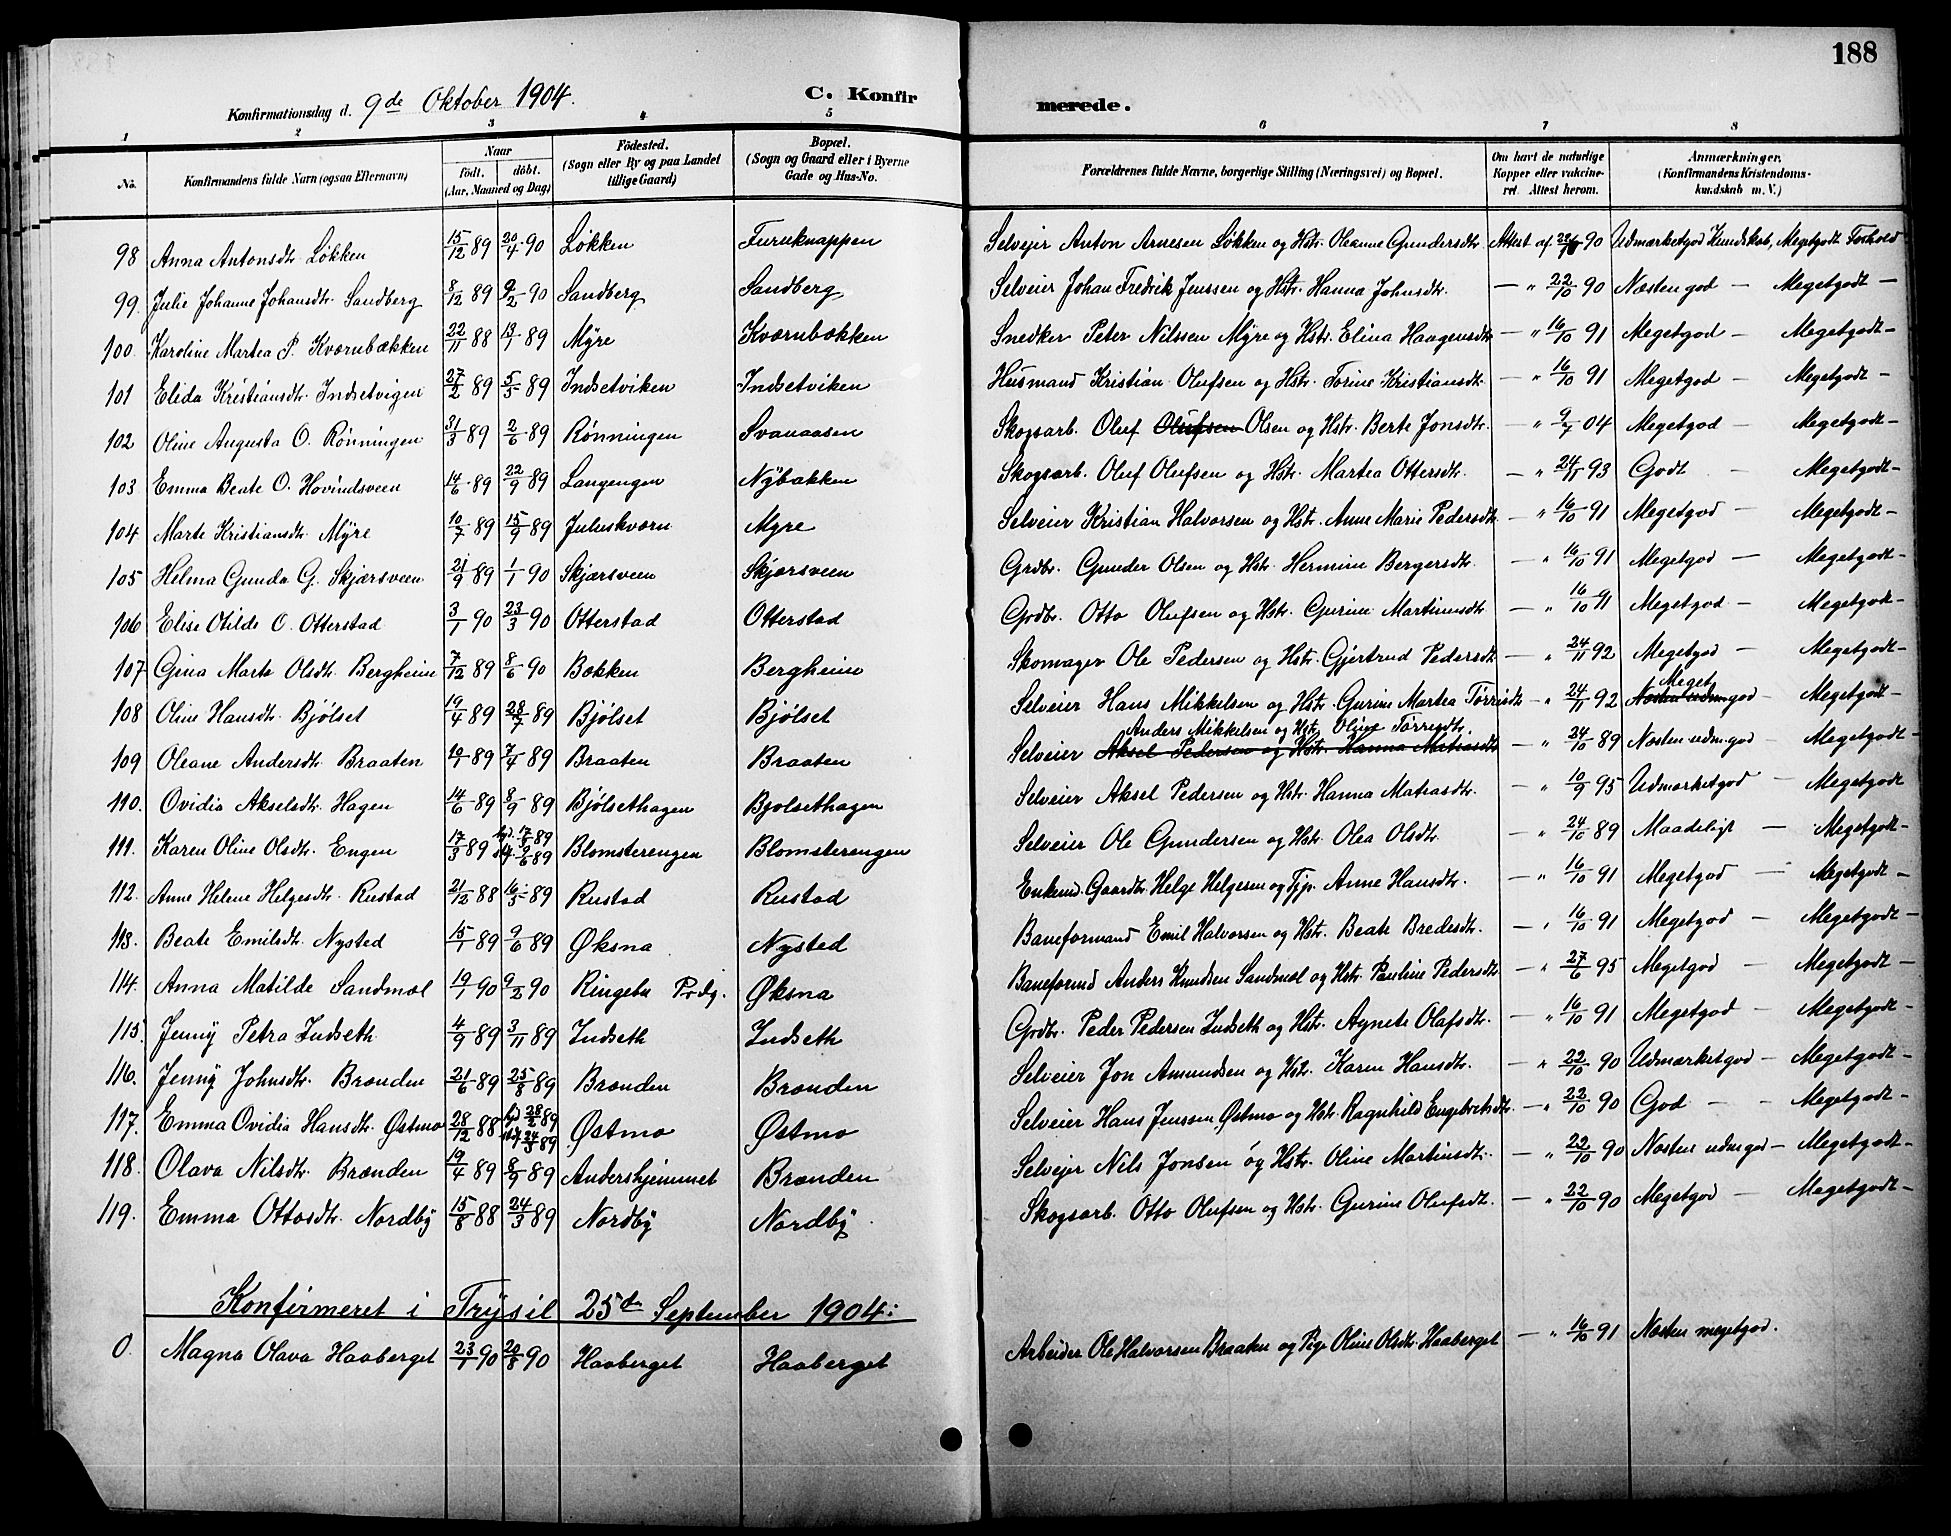 188
Konfirmationsdag d. 9de Oktober 1904. C. Konfirmerede.
1 2 3 4 5 6 7 8
No. Konfirmandens fulde Navn (ogsaa Efternavn) Naar født. døbt. (Aar, Maaned og Dag) Fødested. (Sogn eller By og paa Landet tillige Gaard) Bopæl. (Sogn og Gaard eller i Byerne Gade og Hus-No. Forældrenes fulde Navne, borgerlige Stilling (Næringsvei) og Bopæl. Om havt de naturlige Kopper eller vakcineret. Attest herom. Anmærkninger. (Konfirmandens Kristendomskundskab m. V.)
98 Anna Antonsdtr. Løkken 15/12 89 20/4 90 Løkken Furuknappen Selveier Anton Arnesen Løkken og Hstr. Oleanne Gundersdtr. Attest af 90 Udmærketgod Kundskab, Megetgodt Forhold
99. Julie Johanne Johansdtr. Sandberg 8/12 89 9/2 90 Sandberg Sandberg Selveier Johan Fredrik Jenssen og Hstr. Hanna Johnsdtr. — " 22/10 90 Næsten god — Megetgodt —
100. Karoline Martea P. Kværnbækken 22/11 88 13/1 89 Myre Kværnbækken Snedker Peter Nilssen Myre og Hstr. Elina Haagensdtr — " 16/10 91 Megetgod — Megetgodt —
101 Elida Kristiansdtr. Indsetvigen 27/2 89 5/5 89 Indsetviken Indsetviken Husmand Kristian Olufsen og Hstr. Torine Kristiansdtr. — " 16/10 91 Megetgod — Megetgodt —
102 Oline Augusta O. Rønningen 31/3 89 2/6 89 Rønningen Svanaasen Skogsarb. Oluf Olufsen Olsen og Hstr. Berte Jonsdtr. — " 9/7 04 Megetgod — Megetgodt —
103 Emma Beate O. Hovindsveen 14/6 89 22/9 89 Langengen Nybakken Skogsarb. Oluf Olufsen og Hstr. Martea Ottersdtr. — " 93 Godt — Megetgodt —
104 Marte Kristiansdtr. Myre 10/7 89 15/9 89 Juliuskværn Myre Selveier Kristian Halvorsen og Hstr. Anne Marie Pedersdtr — " 16/10 91 Megetgod — Megetgodt —
105 Helma Gunda G. Skjærsveen 21/9 89 1/1 90 Skjærsveen Skjærsveen Grdbr. Gunder Olsen og Hstr. Hermine Bergersdtr. — " 16/10 91 Megetgod — Megetgodt —
106 Elise Otilde O. Otterstad 3/1 90 23/3 90 Otterstad Otterstad Grdbr. Otto Olufsen og Hstr. Gurine Martinusdtr — " 16/10 91 Megetgod — Megetgodt —
107 Gina Marte Olsdtr. Bergheim 7/12 89 8/6 90 Bækken Bergheim Skomager Ole Pedersen og Hstr. Gjertrud Pedersdtr — " 24/11 92 Megetgod — Megetgodt —
108 Oline Hansdtr. Bjølset 19/4 89 28/7 89 Bjølset Bjølset Selveier Hans Mikkelsen og Hstr. Gurine Martea Tørrisdtr — " 24/11 92 Næsten udm. Meget god — Megetgodt —
109 Oleane Andersdtr. Braaten 10/1 89 7/4 89 Braaten Braaten Selveier Aksel Pedersen og Hstr. Hanna Matiasdtr Anders Mikkelsen og Hstr. Oline Tørresdtr. — " 24/10 89 Næsten udm.god — Megetgodt —
110. Ovidia Akselsdtr. Hagen 14/6 89 8/9 89 Bjølsethagen Bjølsethagen Selveier Aksel Pedersen og Hstr. Hanna Matiasdtr. — " 10/9 95 Udmærketgod — Megetgodt
111. Karen Oline Olsdtr. Engen 17/3 89 hjd. 17/3 89 9/6 89 Blomsterengen Blomsterengen Selveier Ole Gundersen og Hstr. Olea Olsdtr. — " 24/10 89 Maadeligt — Megetgodt —
112. Anne Helene Helgesdtr. Rustad 21/12 88 16/3 89 Rustad Rustad Enkemd. Gaardbr. Helge Helgesen og Tjp. Anne Hansdtr. — " 16/10 91 Megetgod — Megetgodt —
113. Beate Emilsdtr. Nysted 15/1 89 9/6 89 Øksna Nysted Baneformand Emil Halvorsen og Hstr. Beate Bredesdtr. — " 16/10 91 Megetgod — Megetgodt —
114. Anna Matilde Sandmæl 19/1 90 9/2 90 Ringebu Prdg. Øksna Baneformd Anders Knudsen Sandmæl og Hstr. Pauline Pedersdtr — " 27/6 95 Megetgod — Megetgodt —
115. Jenny Petra Indseth 4/9 89 3/11 89 Indseth Indseth Grdbr. Peder Pedersen Indseth og Hstr. Agnete Olafsdtr. — " 16/10 91 Megetgod — Megetgodt —
116. Jenny Johnsdtr. Brænden 21/6 89 25/8 89 Brænden Brænden Selveier Jon Amundsen og Hstr. Karen Hansdtr. — " 22/10 90 Udmærketgod — Megetgodt —
117. Emma Ovidia Hansdtr. Østmo 28/12 88 hjd 28/2 89 24/3 89 Østmo Østmo Selveier Hans Jenssen Østmo og Hstr. Ragnhild Engebretsdtr. — " 22/10 90 God — Megetgodt —
118. Olava Nilsdtr. Brænden 19/4 89 8/9 89 Andershjemmet Brænden Selveier Nils Jonsen og Hstr. Oline Martinsdtr. — " 22/10 90 Næsten udm.god — Megetgodt —
119. Emma Ottosdtr. Nordby 15/8 88 24/3 89 Nordby Nordby Skogsarb. Otto Olufsen og Hstr. Gurine Olufsdtr. — " 22/10 90 Megetgod — Megetgodt —
Konfirmeret i Trysil 25de September 1904:
0. Magna Olava Haaberget 23/1 90 20/8 90 Haaberget Haaberget Arbeider Ole Halvorsen Braaten og Pige Oline Olsdtr. Haaberget — " 16/10 91 Næsten megetgod.